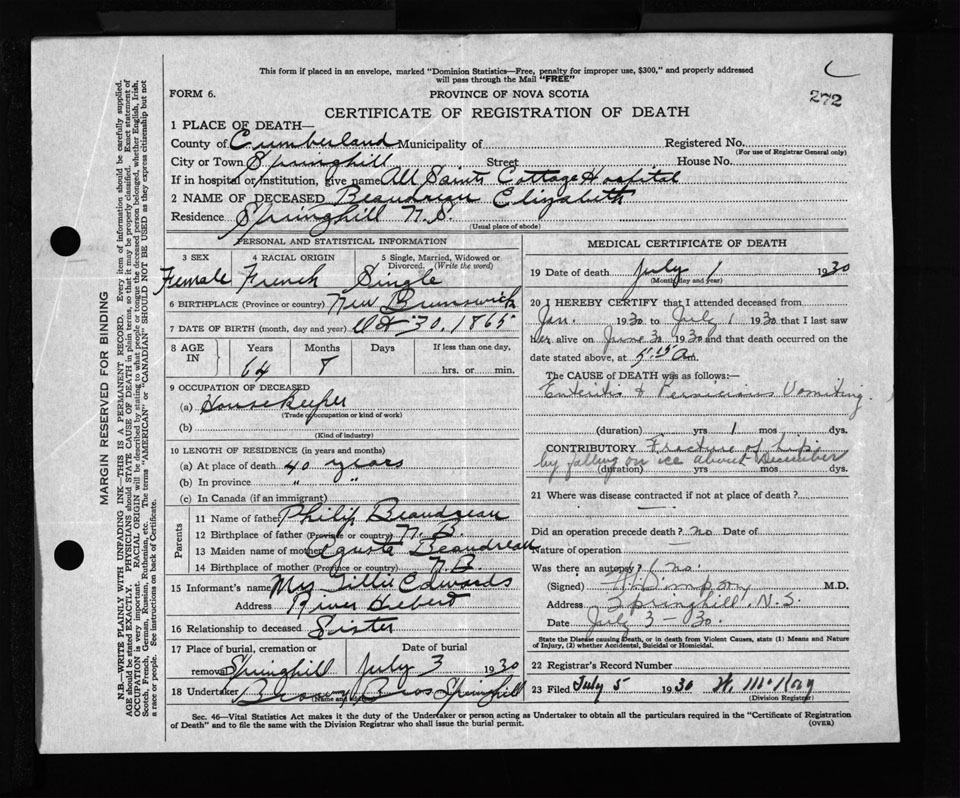 This form if placed in an envelope, marked "Dominion Statistics—Free, penalty for improper use, $300," and properly addressed
will pass through the Mail "FREE"
FORM 6.
PROVINCE OF NOVA SCOTIA
272
CERTIFICATE OF REGISTRATION OF DEATH
1 PLACE OF DEATH—
County of Cumberland Municipality of Registered No.
(For use of Registrar General only)
City or Town Springhill Street House No.
If in hospital or institution, give name All Saints Cottage Hospital
2 NAME OF DECEASED Beaudreau Elizabeth
Residence Springhill N.S.
(Usual place of abode)
PERSONAL AND STATISTICAL INFORMATION
3 SEX 4 RACIAL ORIGIN 5 Single, Married, Widowed or Divorced. (Write the word)
Female French Single
6 BIRTHPLACE (Province or country) New Brunswick
7 DATE OF BIRTH (month, day and year) Oct 30, 1865
8 AGE IN Years Months Days If less than one day,
64 8 hrs. or min.
9 OCCUPATION OF DECEASED
(a) Housekeeper
(Trade, occupation or kind of work)
(b)
(Kind of industry)
10 LENGTH OF RESIDENCE (in years and months)
(a) At place of death 40 years
(b) In province " "
(c) In Canada (if an immigrant)
Parents
11 Name of father Philip Beaudreau
12 Birthplace of father (Province or country) N.B.
13 Maiden name of mother Agusta Beaudreau
14 Birthplace of mother (Province or country) N.B.
15 Informant's name Mrs Tillie Edwards
Address River Hebert
16 Relationship to deceased Sister
17 Place of burial, cremation or Date of burial
removal Springhill July 3 1930
18 Undertaker Brown Bros Springhill
(Name and
MEDICAL CERTIFICATE OF DEATH
19 Date of death July 1 1930
(Month, day and year)
20 I HEREBY CERTIFY that I attended deceased from
Jan. 1930 to July 1 1930 that I last saw
her alive on June 30 1930 and that death occurred on the
date stated above, at 5.15 A m.
The CAUSE of DEATH was as follows:—
Enteritis & Pernicious Vomiting.
(duration) yrs 1 mos dys.
CONTRIBUTORY Fracture of hip
by falling on ice about December
(duration) yrs mos dys.
21 Where was disease contracted if not at place of death?
Did an operation precede death? no Date of
Nature of operation
Was there an autopsy? no.
(Signed) Simpson M.D.
Address Springhill, N.S.
Date July 3 - 30.
State the Disease causing Death, or in death from Violent Causes, state (1) Means and Nature
of Injury, (2) whether Accidental, Suicidal or Homicidal.
22 Registrar's Record Number
23 Filed July 5 1930 W. McKay
(Division Registrar)
Sec. 46—Vital Statistics Act makes it the duty of the Undertaker or person acting as Undertaker to obtain all the particulars required in the "Certificate of Registration
of Death" and to file the same with the Division Registrar who shall issue the burial permit.
(OVER)
MARGIN RESERVED FOR BINDING
N.B.—WRITE PLAINLY WITH UNFADING INK—THIS IS A PERMANENT RECORD. Every item of information should be carefully supplied.
AGE should be stated EXACTLY. PHYSICIANS should STATE CAUSE OF DEATH in plain terms, so that it may be properly classified. Exact statement of
OCCUPATION is very important. RACIAL ORIGIN will be described by stating to what people or tongue the deceased person belonged, whether English, Irish,
Scotch, French, German, Russian, Ruthenian, etc. The terms "AMERICAN" or "CANADIAN" SHOULD NOT BE USED as they express citizenship but not
a race or people. See instructions on back of Certificate.